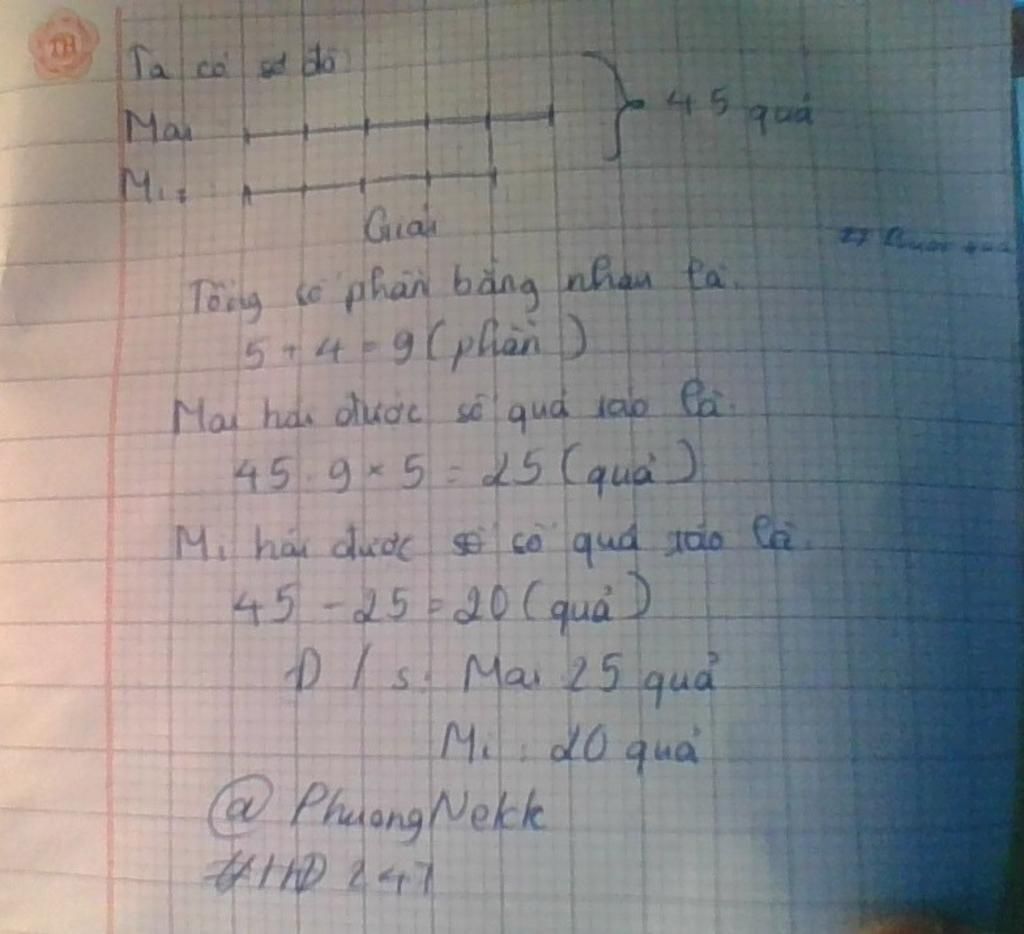 TH
Ta có sơ đồ
Mai 45 quả
Mi :
Giải
Tổng số phần bằng nhau là:
5 + 4 = 9 (phần)
Mai hái được số quả táo là:
45 : 9 x 5 = 25 (quả)
Mi hái được số quả táo là:
45 - 25 = 20 (quả)
Đ / s : Mai 25 quả
Mi : 20 quả
@ PhuongNekk
247